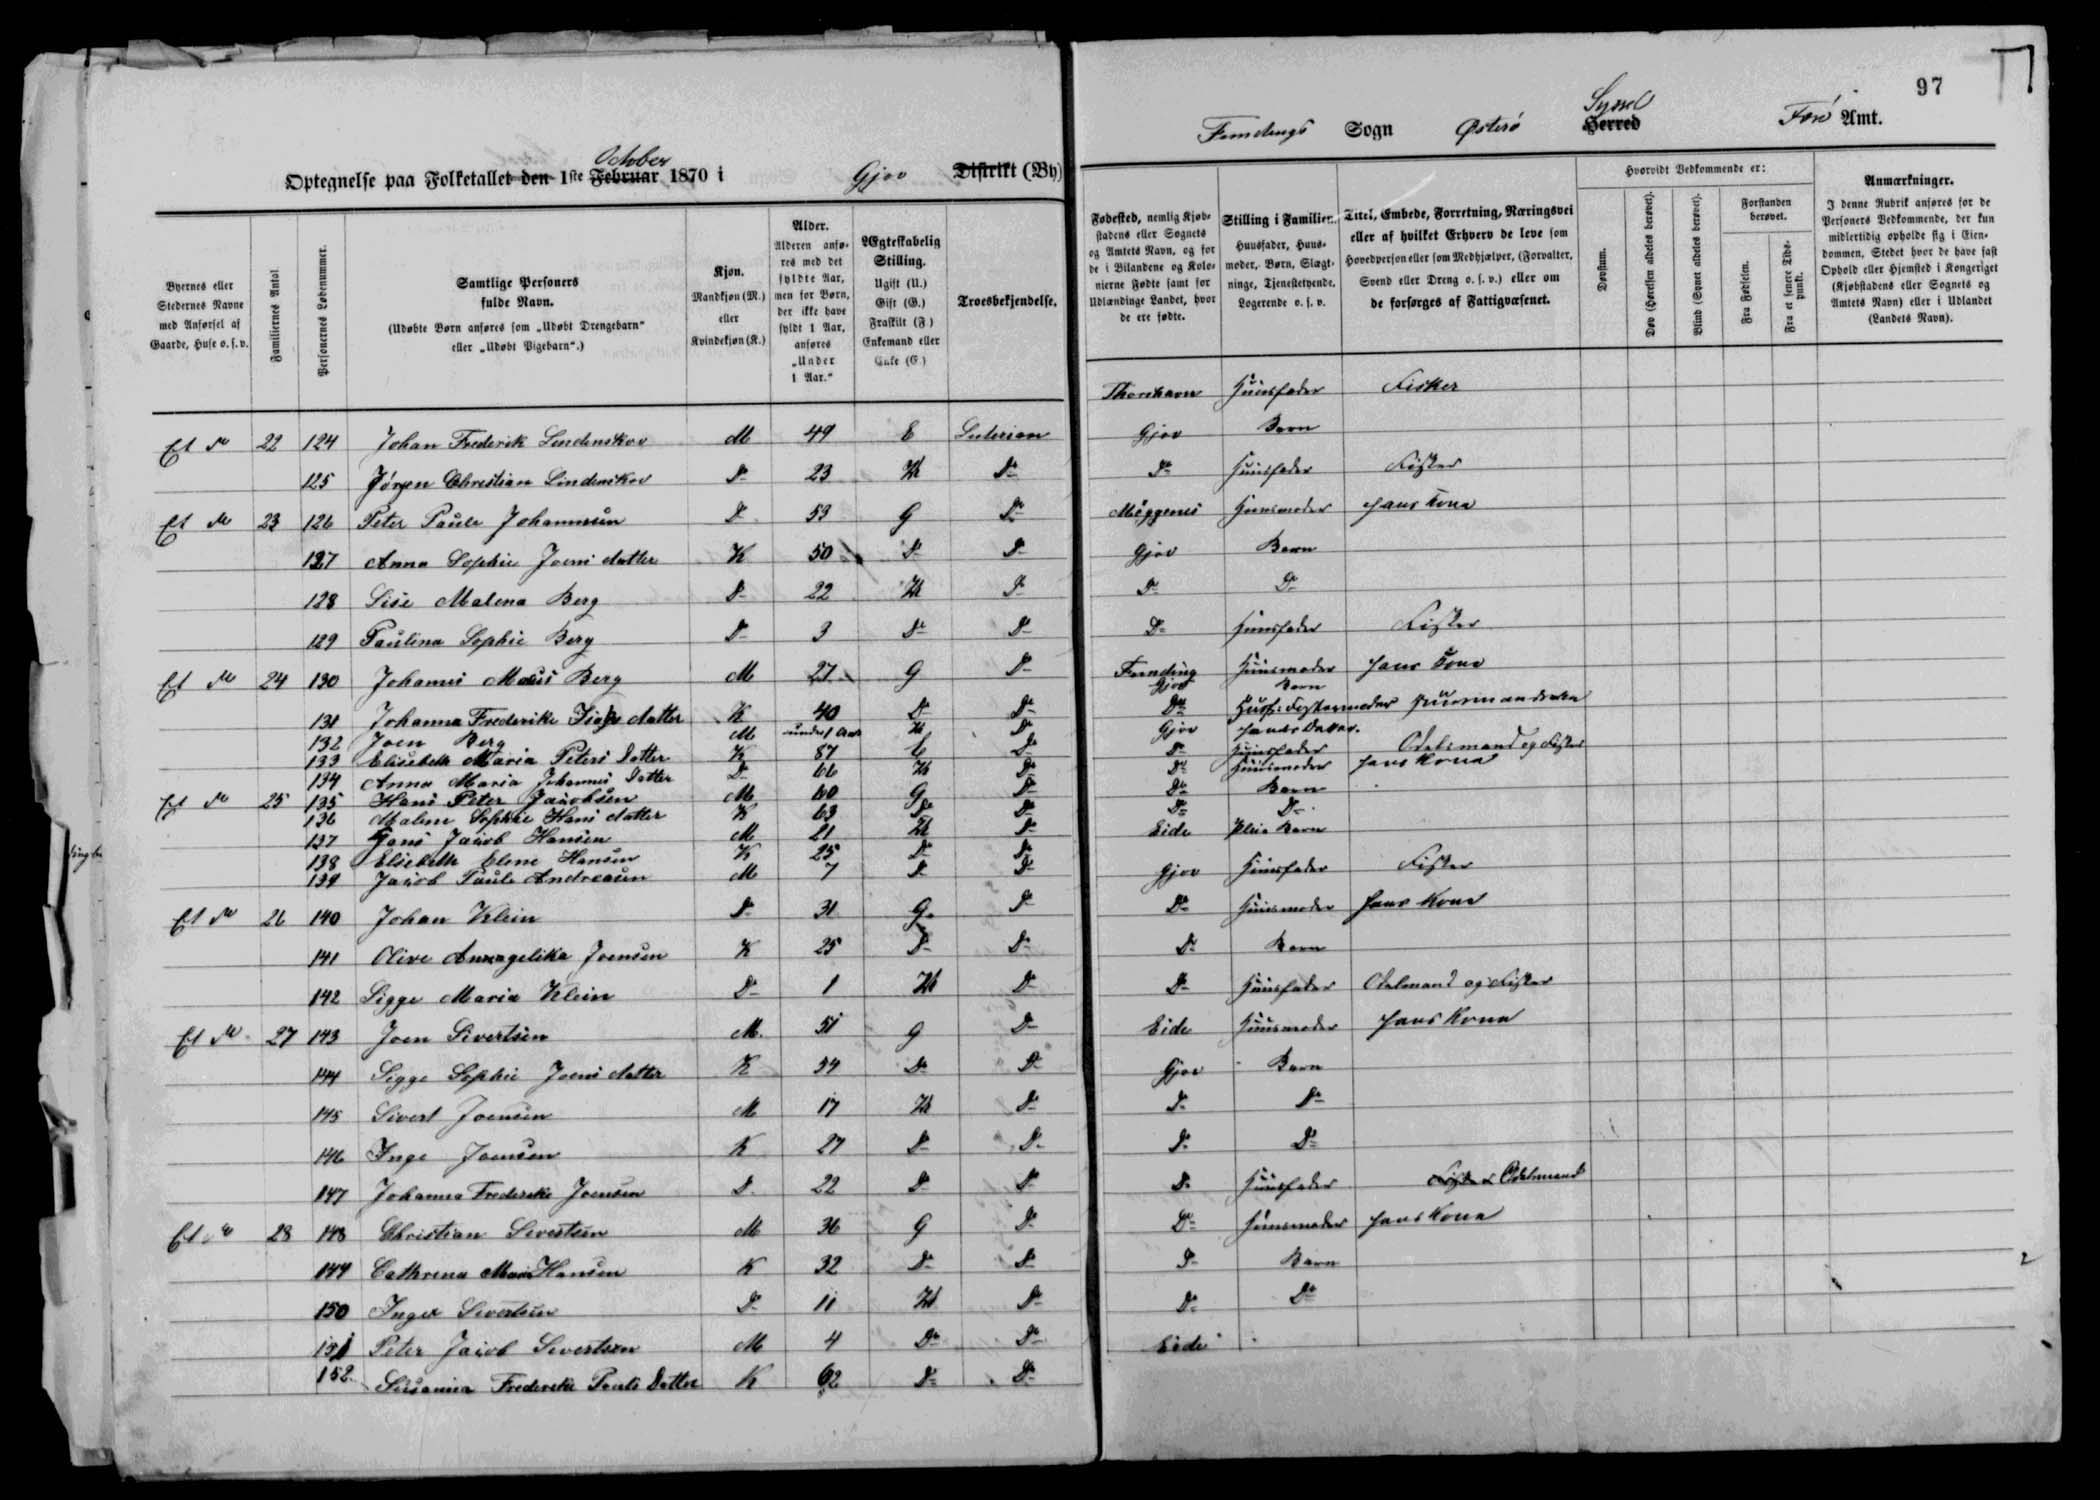 97
October
Optegnelse paa Folketallet den 1ste Februar 1870 i Gjov Distrikt (By)
Syssel
Fundings Sogn Østerø Herred Færø Amt.
Byernes eller Stedernes Navne med Anførsel af Gaarde, Huse o. s. v.
Familiernes Antal.
Personernes Løbenummer.
Samtlige Personers fulde Navn.
(Udøbte Børn anføres som „Udøbt Drengebarn" eller „Udøbt Pigebarn".)
Kjøn. Mandkjøn (M.) eller Kvindekjøn (K.)
Alder. Alderen anføres med det fyldte Aar, men for Børn, der ikke have fyldt 1 Aar, anføres „Under 1 Aar."
Ægteskabelig Stilling. Ugift (U.) Gift (G.) Fraskilt (F.) Enkemand eller Enke (E.)
Troesbekjendelse.
Fødested, nemlig Kjøbstadens eller Sognets og Amtets Navn, og for de i Bilandene og Kolonierne Fødte samt for Udlændinge Landet, hvor de ere fødte.
Stilling i Familien. Huusfader, Huusmoder, Børn, Slægtninge, Tjenestetyende, Logerende o. s. v.
Titel, Embede, Forretning, Næringsvei eller af hvilket Erhverv de leve som Hovedperson eller som Medhjælper, (Forvalter, Svend eller Dreng o. s. v.) eller om de forsørges af Fattigvæsenet.
Hvorvidt Vedkommende er:
Døvstum.
Døv (Hørelsen aldeles berøvet).
Blind (Synet aldeles berøvet).
Forstanden berøvet.
Fra Fødselen.
Fra et senere Tidspunkt.
Anmærkninger.
I denne Rubrik anføres for de Personers Vedkommende, der kun midlertidig opholde sig i Eiendommen, Stedet hvor de have fast Ophold eller Hjemsted i Kongeriget (Kjøbstadens eller Sognets og Amtets Navn) eller i Udlandet (Landets Navn).
22 124 Johan Frederik Lindenskov M 49 E Luterian Thorshavn Huusfader Fisker
125 Jørgen Christian Lindenskov Do 23 U Do Gjov Barn
23 126 Peter Paule Johannesen Do 53 G Do Do Huusfader Fisker
127 Anna Sophie Joens datter K 50 Do Do Myggenes Huusmoder hans Kone
128 Sise Malena Berg Do 22 U Do Gjov Barn
129 Paulina Sophie Berg Do 3 Do Do Do Do
24 130 Johannes Maus Berg M 27 G Do Do Huusfader Fisker
131 Johanna Frederike datter K 40 Do Do Funding Huusmoder hans Kone
132 Joen Berg M under 1 Aar U Do Gjov Barn
133 Elisebeth Maria Peters Datter K 87 E Do Do
134 Anna Maria Johannes Datter Do 66 U Do Gjov
25 135 Hans Peter Jacobsen M 60 G Do Do Huusfader Odelsmand og Fisker
136 Malene Sophie Hans datter K 63 Do Do Do Huusmoder hans Kone
137 Hans Jacob Hansen M 21 U Do Do Barn
138 Elsebeth Elene Hansen K 25 Do Do Do Do
139 Jacob Paule Andreasen M 7 Do Do Eide Pleie Barn
26 140 Johan Klein Do 31 G. Do Gjov Huusfader Fisker
141 Olive Annagelika Joensen K 25 Do Do Do Huusmoder hans Kone
142 Sigge Maria Klein Do 1 U Do Do Barn
27 143 Joen Sivertsen M. 51 G Do Do Huusfader Odelmand og Fisker
144 Sigge Sophie Joens datter K 54 Do Do Eide Huusmoder hans Kone
145 Sivert Joensen M 17 U Do Gjov Barn
146 Inge Joensen K 27 Do Do Do Do
147 Johanna Frederike Joensen D. 22 Do Do Do Do
28 148 Christian Sivertsen M 36 G Do Do Huusfader Fisker Odelmand
149 Cathrina Maria Hansen K 32 Do Do Do Huusmoder hans Kone
150 Inger Sivertsen Do 11 U Do Do Barn
151 Peter Jacob Sivertsen M 4 Do Do Do Do
152. Susanna Frederike Pouls Datter K 62 Do Do Eide